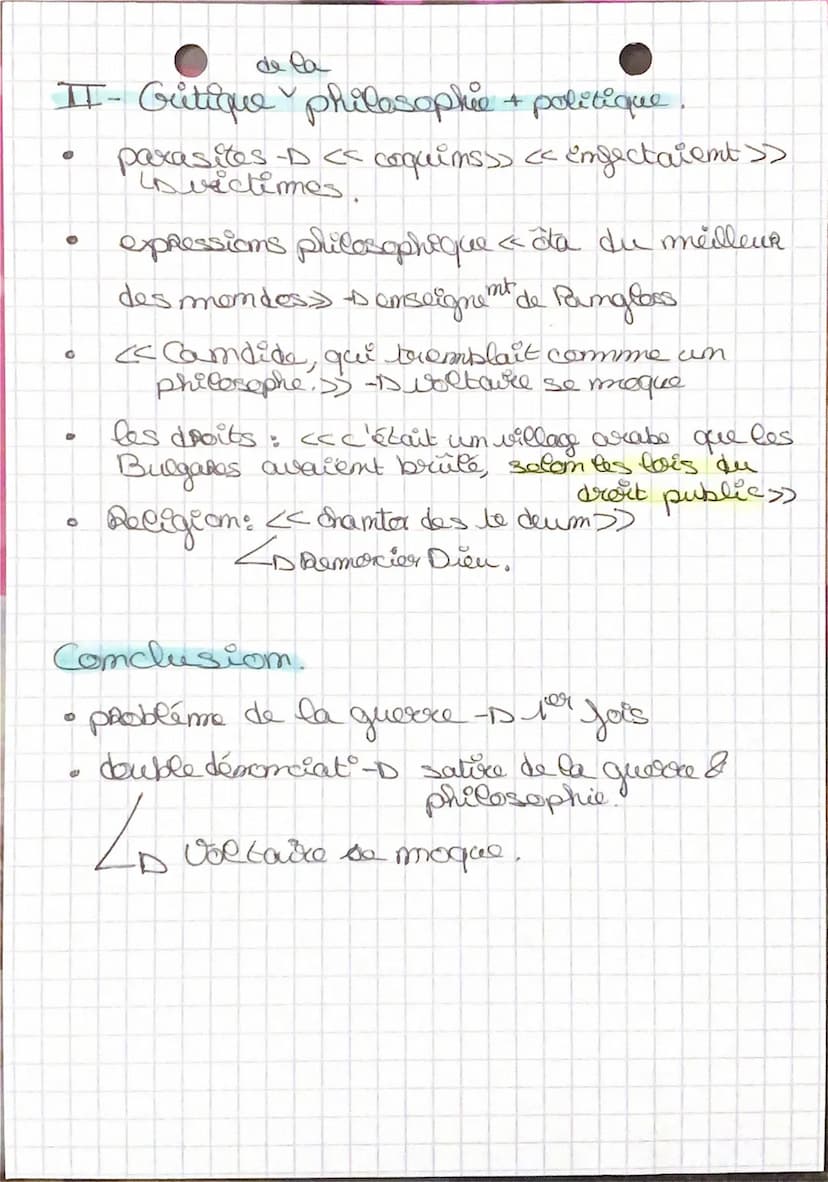 II - Critique de la philosophie + politique.
• parasites → << coquins >> << infectaient >>
↳ victimes.
• expressions philosophique << ôta du meilleur
des mondes >> → enseigne^mt de Pangloss
• << Candide, qui tremblait comme un
philosophe. >> → Voltaire se moque
• les droits : << c'était un village arabe que les
Bulgares avaient brûlé, selon les lois du
droit public >>
• Religion : << chanter des te deum >>
↳ Remercier Dieu.
Conclusion.
• problème de la guerre → 1er fois
• double dénonciat° → satire de la guerre &
philosophie.
↳ Voltaire se moque.